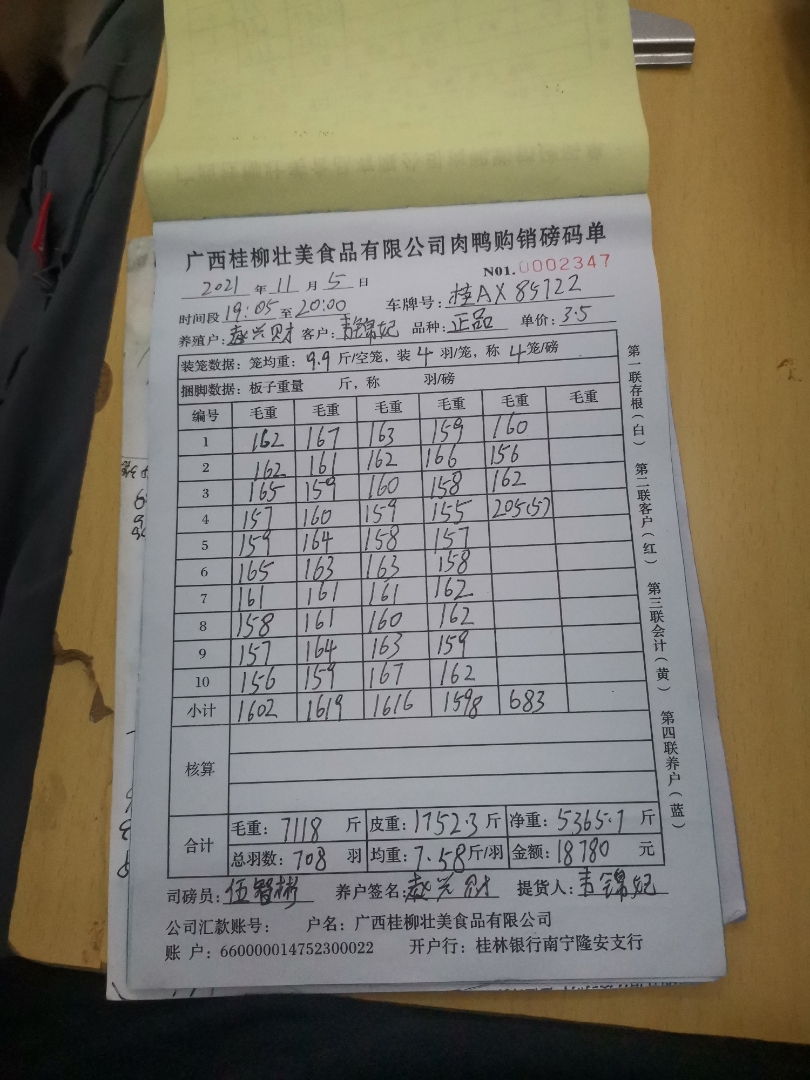 广西桂柳壮美食品有限公司肉鸭购销磅码单
N01.0002347
2021 年 11 月 5 日
时间段 19:05 至 20:00 车牌号: 桂AX85722
养殖户: 赵兴财 客户: 青锦妃 品种: 正品 单价: 3.5
装笼数据: 笼均重: 9.9 斤/空笼, 装 4 羽/笼, 称 4 笼/磅
捆脚数据: 板子重量 斤, 称 羽/磅
编号 毛重 毛重 毛重 毛重 毛重 毛重
1 162 167 163 159 160
2 162 161 162 166 156
3 165 159 160 158 162
4 157 160 159 155 205(5)
5 159 164 158 157
6 165 163 163 158
7 161 161 161 162
8 158 161 160 162
9 157 164 163 159
10 156 159 167 162
小计 1602 1619 1616 1598 683
核算
合计 毛重: 7118 斤 皮重: 1752.3 斤 净重: 5365.7 斤
总羽数: 708 羽 均重: 7.58 斤/羽 金额: 18780 元
司磅员: 伍智彬 养户签名: 赵兴财 提货人: 青锦妃
公司汇款账号: 户名: 广西桂柳壮美食品有限公司
账 户: 660000014752300022 开户行: 桂林银行南宁隆安支行
第一联存根(白) 第二联客户(红) 第三联会计(黄) 第四联养户(蓝)